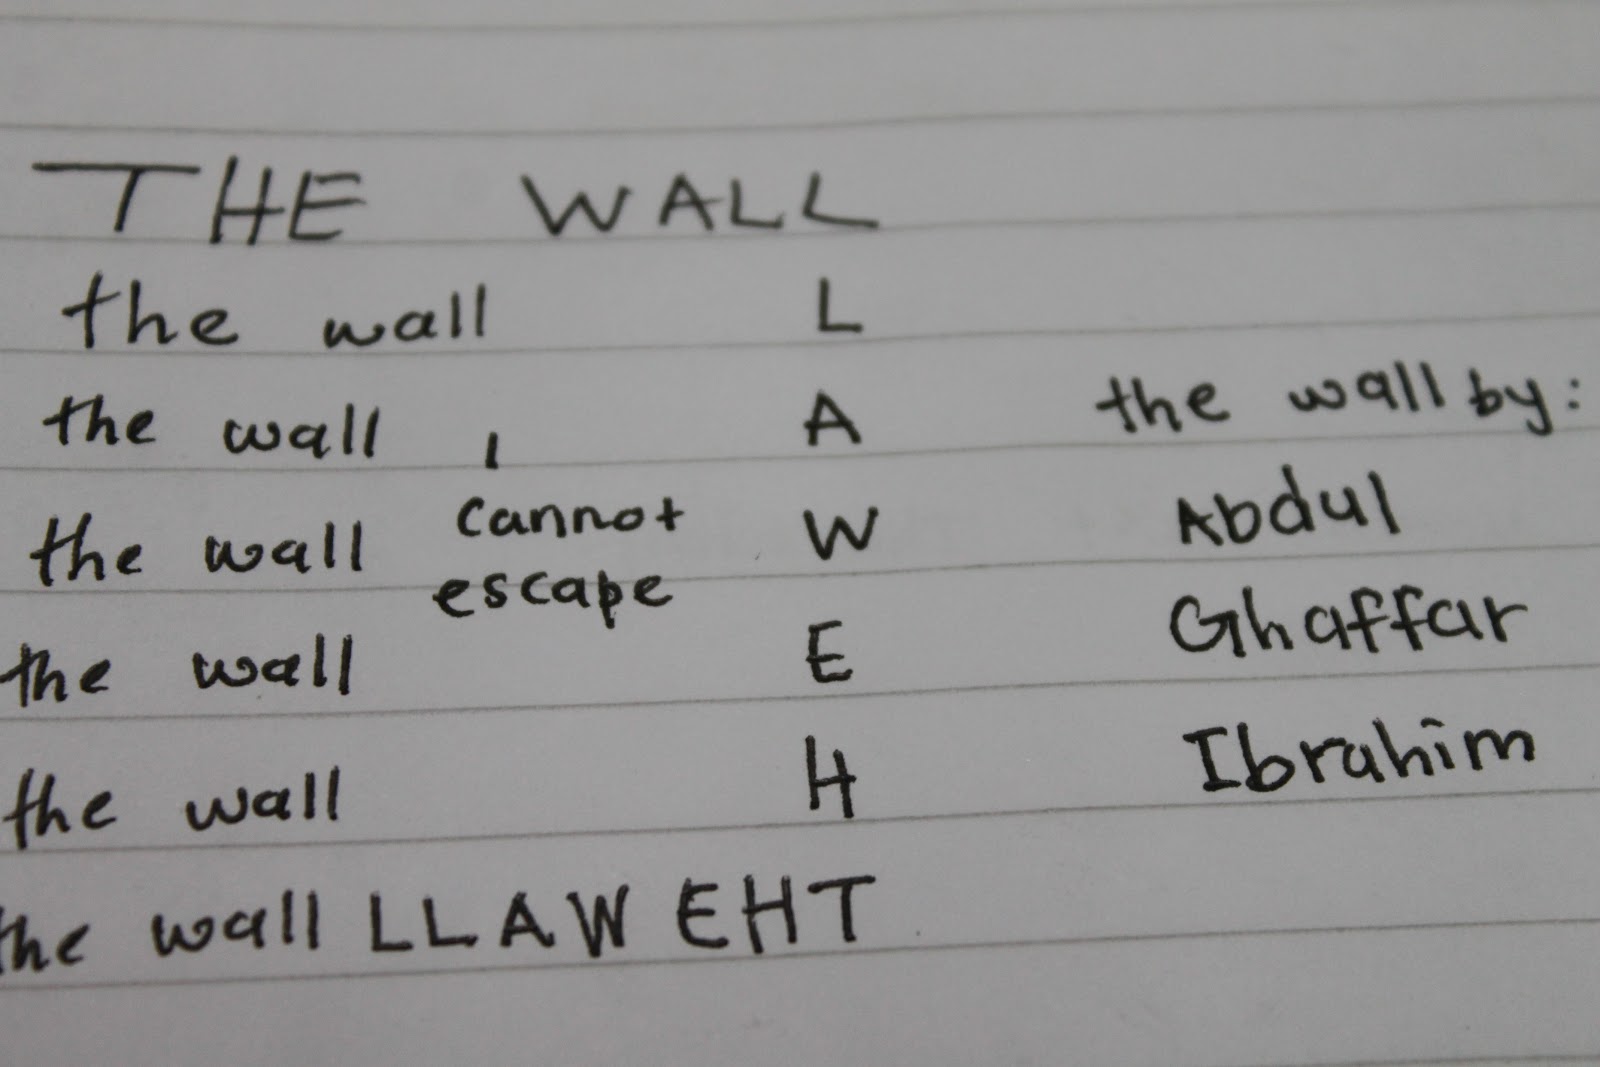 THE WALL
the wall L
the wall I A
the wall cannot W
escape
the wall E
the wall H
the wall LLAW EHT
the wall by:
Abdul
Ghaffar
Ibrahim